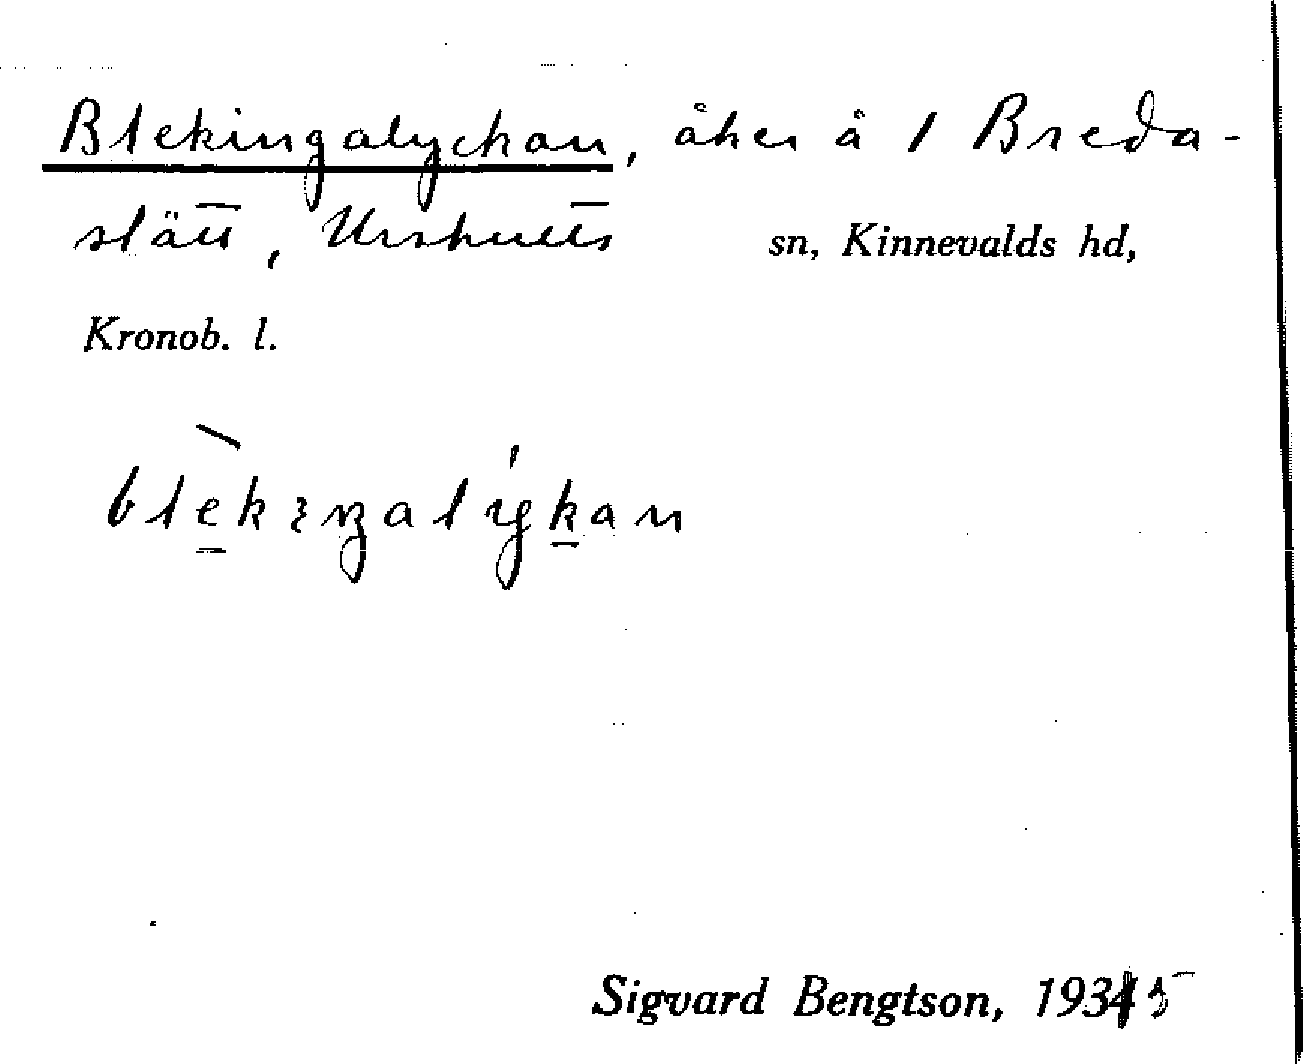 Blekingalyckan, åker å 1 Breda-
slätt, Urshults sn, Kinnevalds hd,
Kronob. l.
Sigvard Bengtson, 1935